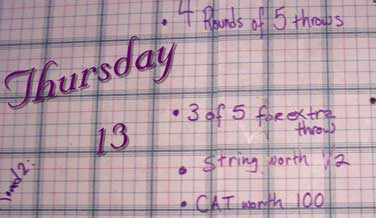 • 4 Rounds of 5 throws
Thursday
• 3 of 5 for extra
throw
13
• String worth 1/2
• CAT worth 100